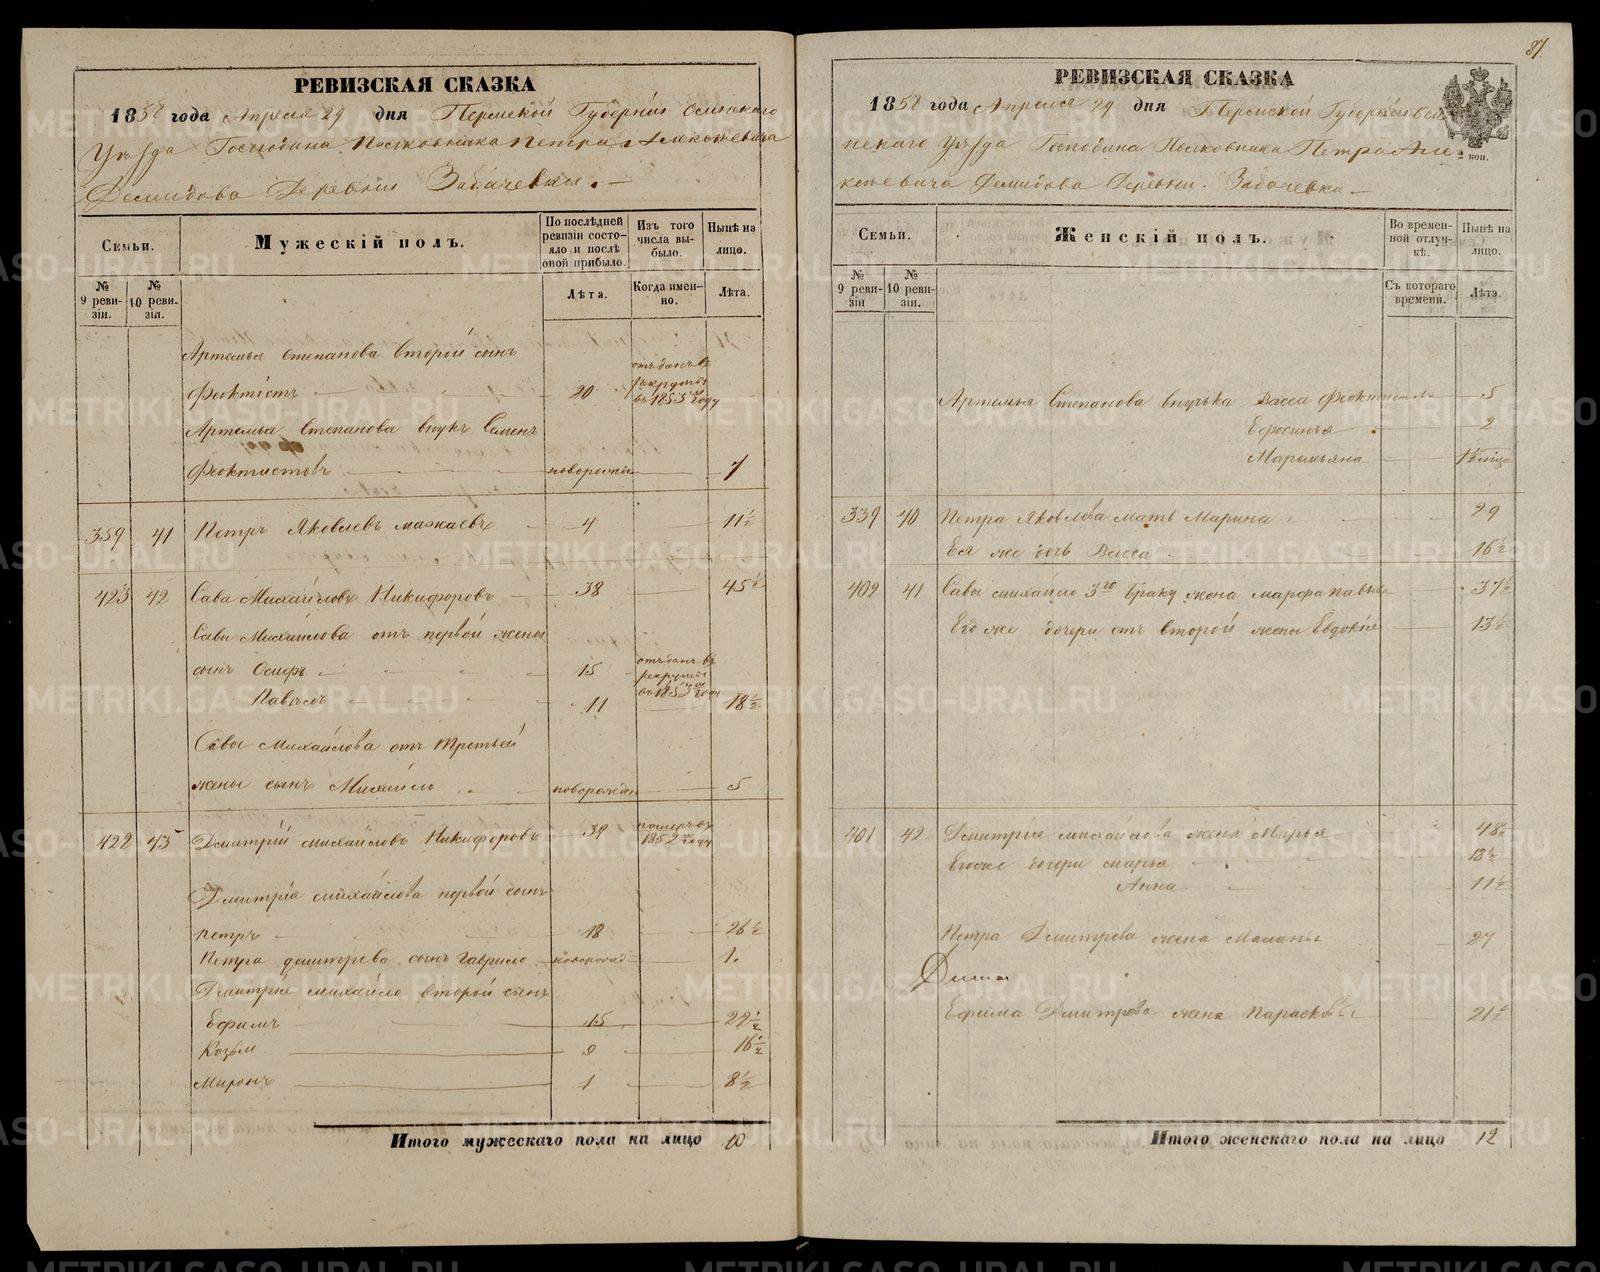 РЕВИЗСКАЯ СКАЗКА
1858 года Апреля 29 дня Пермской Губернiи Осинскаго
Уѣзда Господина Полковника Петра Алексѣевича
Демидова Деревни
Семьи.
Мужескiй полъ.
По послѣдней ревизiи состояло и послѣ оной прибыло.
Изъ того числа выбыло.
Нынѣ на лицо.
№ 9 ревизiи.
№ 10 ревизiи.
Лѣта.
Когда именно.
Лѣта.
Артемья Степанова второй сынъ
Феоктистъ 20 отданъ въ рекруты въ 1853 году
Артемья Степанова внукъ Семенъ
Феоктистовъ новорожден 7
359 41 Петръ Яковлевъ 4 11½
423 42 Сава Михайловъ Никифоровъ 38 45½
Савы Михайлова отъ первой жены
сынъ Осифъ 15 отданъ въ рекруты въ 1853 году
Павелъ 11 18½
Савы Михайлова отъ третьей
жены сынъ Михайло новорожден 5
422 43 Дмитрiй Михайловъ Никифоровъ 39 померъ въ 1852 году
Дмитрiя Михайлова первой сынъ
Петръ 18 26½
Петра Дмитрева сынъ Гаврило новорожд 1.
Дмитрiя Михайло второй сынъ
Ефимъ 15 22½
Козьм 9 16½
Миронъ 1 8½
Итого мужескаго пола на лицо 10
87.
РЕВИЗСКАЯ СКАЗКА
1858 года Апреля 29 дня Пермской Губернiи Осин
скаго Уѣзда Господина Полковника Петра Але
ксѣевича Демидова Деревни.
коп.
Семьи.
Женскiй полъ.
Во временной отлучкѣ.
Нынѣ на лицо.
№ 9 ревизiи
№ 10 ревизiи.
Съ котораго времени.
Лѣта.
Артемья Степанова внучька Васса Феоктистова 5
Ефосинья 2
Марьмьяна
339 40 Петра Яковлева мать Марина 29
Ея же дочь Васса 16½
402 41 Савы Михайло 3го браку жена Марфа 37½
Его же дочери отъ второй жены Евдокiя 13½
401 42 Дмитрiя Михайлова жена Марья 48½
Егоже дочери Марья 13½
Анна 11½
Петра Дмитрева жена Маланья 27
Ефима Дмитрева жена Парасковья 21½
Итого женскаго пола на лицо 12
METRIKI.GASO-URAL.RU